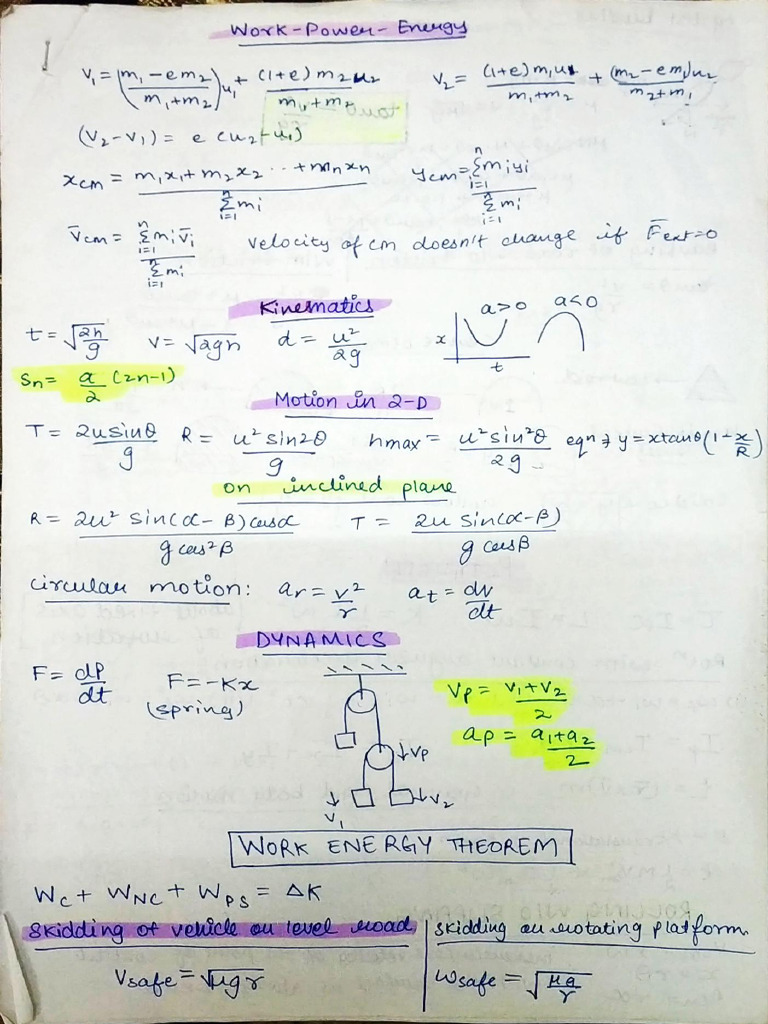 Work-Power-Energy
V₁ = (m₁ - em₂ / m₁+m₂)u₁ + (1+e)m₂u₂ / m₁+m₂ V₂ = (1+e)m₁u₁ / m₁+m₂ + (m₂-em₁)u₂ / m₂+m₁
(V₂-V₁) = e(u₂-u₁)
xcm = m₁x₁+m₂x₂ ..+mnxn / Σⁿᵢ₌₁ mᵢ ycm = Σⁿᵢ₌₁ mᵢyᵢ / Σⁿᵢ₌₁ mᵢ
V̄cm = Σⁿᵢ₌₁ mᵢv̄ᵢ / Σⁿᵢ₌₁ mᵢ velocity of cm doesn't change if F̄ext=0
Kinematics
t = √(2h/g) V = √2gh d = u²/2g x t a>0 a<0
Sn = a/2 (2n-1)
Motion in 2-D
T = 2usinθ/g R = u²sin2θ/g hmax = u²sin²θ/2g eqn → y = xtanθ(1-x/R)
on inclined plane
R = 2u² sin(α-β)cosα / gcos²β T = 2u sin(α-β) / g cosβ
circular motion: ar = v²/r at = dv/dt
DYNAMICS
F = dP/dt F = -Kx (spring) Vp = V₁+V₂/2
ap = a₁+a₂/2
↓Vp
↓V₁ ↓V₂
WORK ENERGY THEOREM
WC + WNC + WPS = ΔK
Skidding of vehicle on level road
Vsafe = √μgr
skidding on rotating platform
ωsafe = √(μg/r)